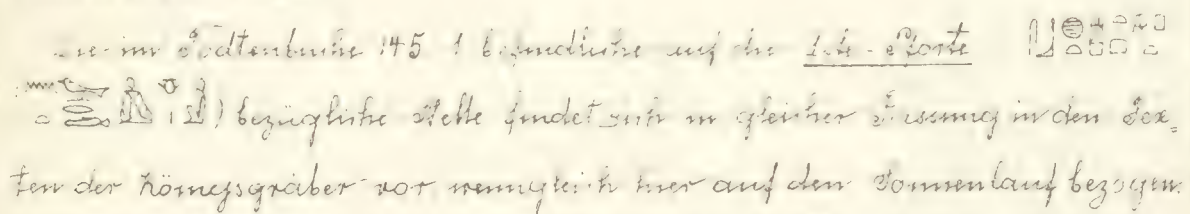 im Todtenbuche 145 befindliche auf die Pforte
bezügliche Stelle findet sich in gleicher Fassung in den Tex=
ten der Königsgräber vor wenngleich hier auf den Sonnenlauf bezogen.